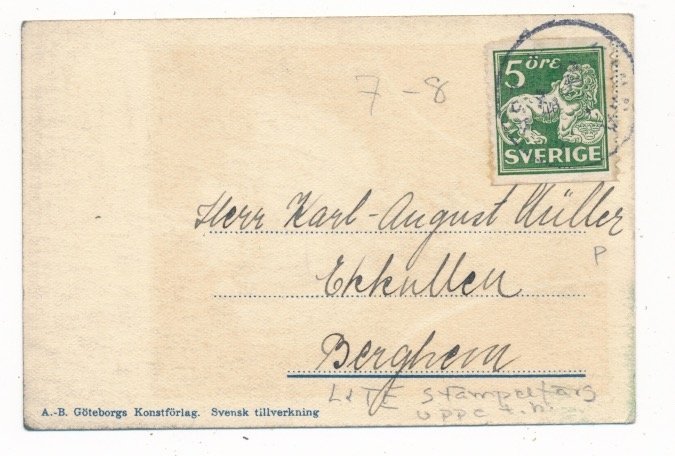 7-8
5 öre
SVERIGE
Herr Karl-August Müller
P
Ekkullen
Berghem
LITE stämpelfärg
uppe t.h.
A.-B. Göteborgs Konstförlag. Svensk tillverkning